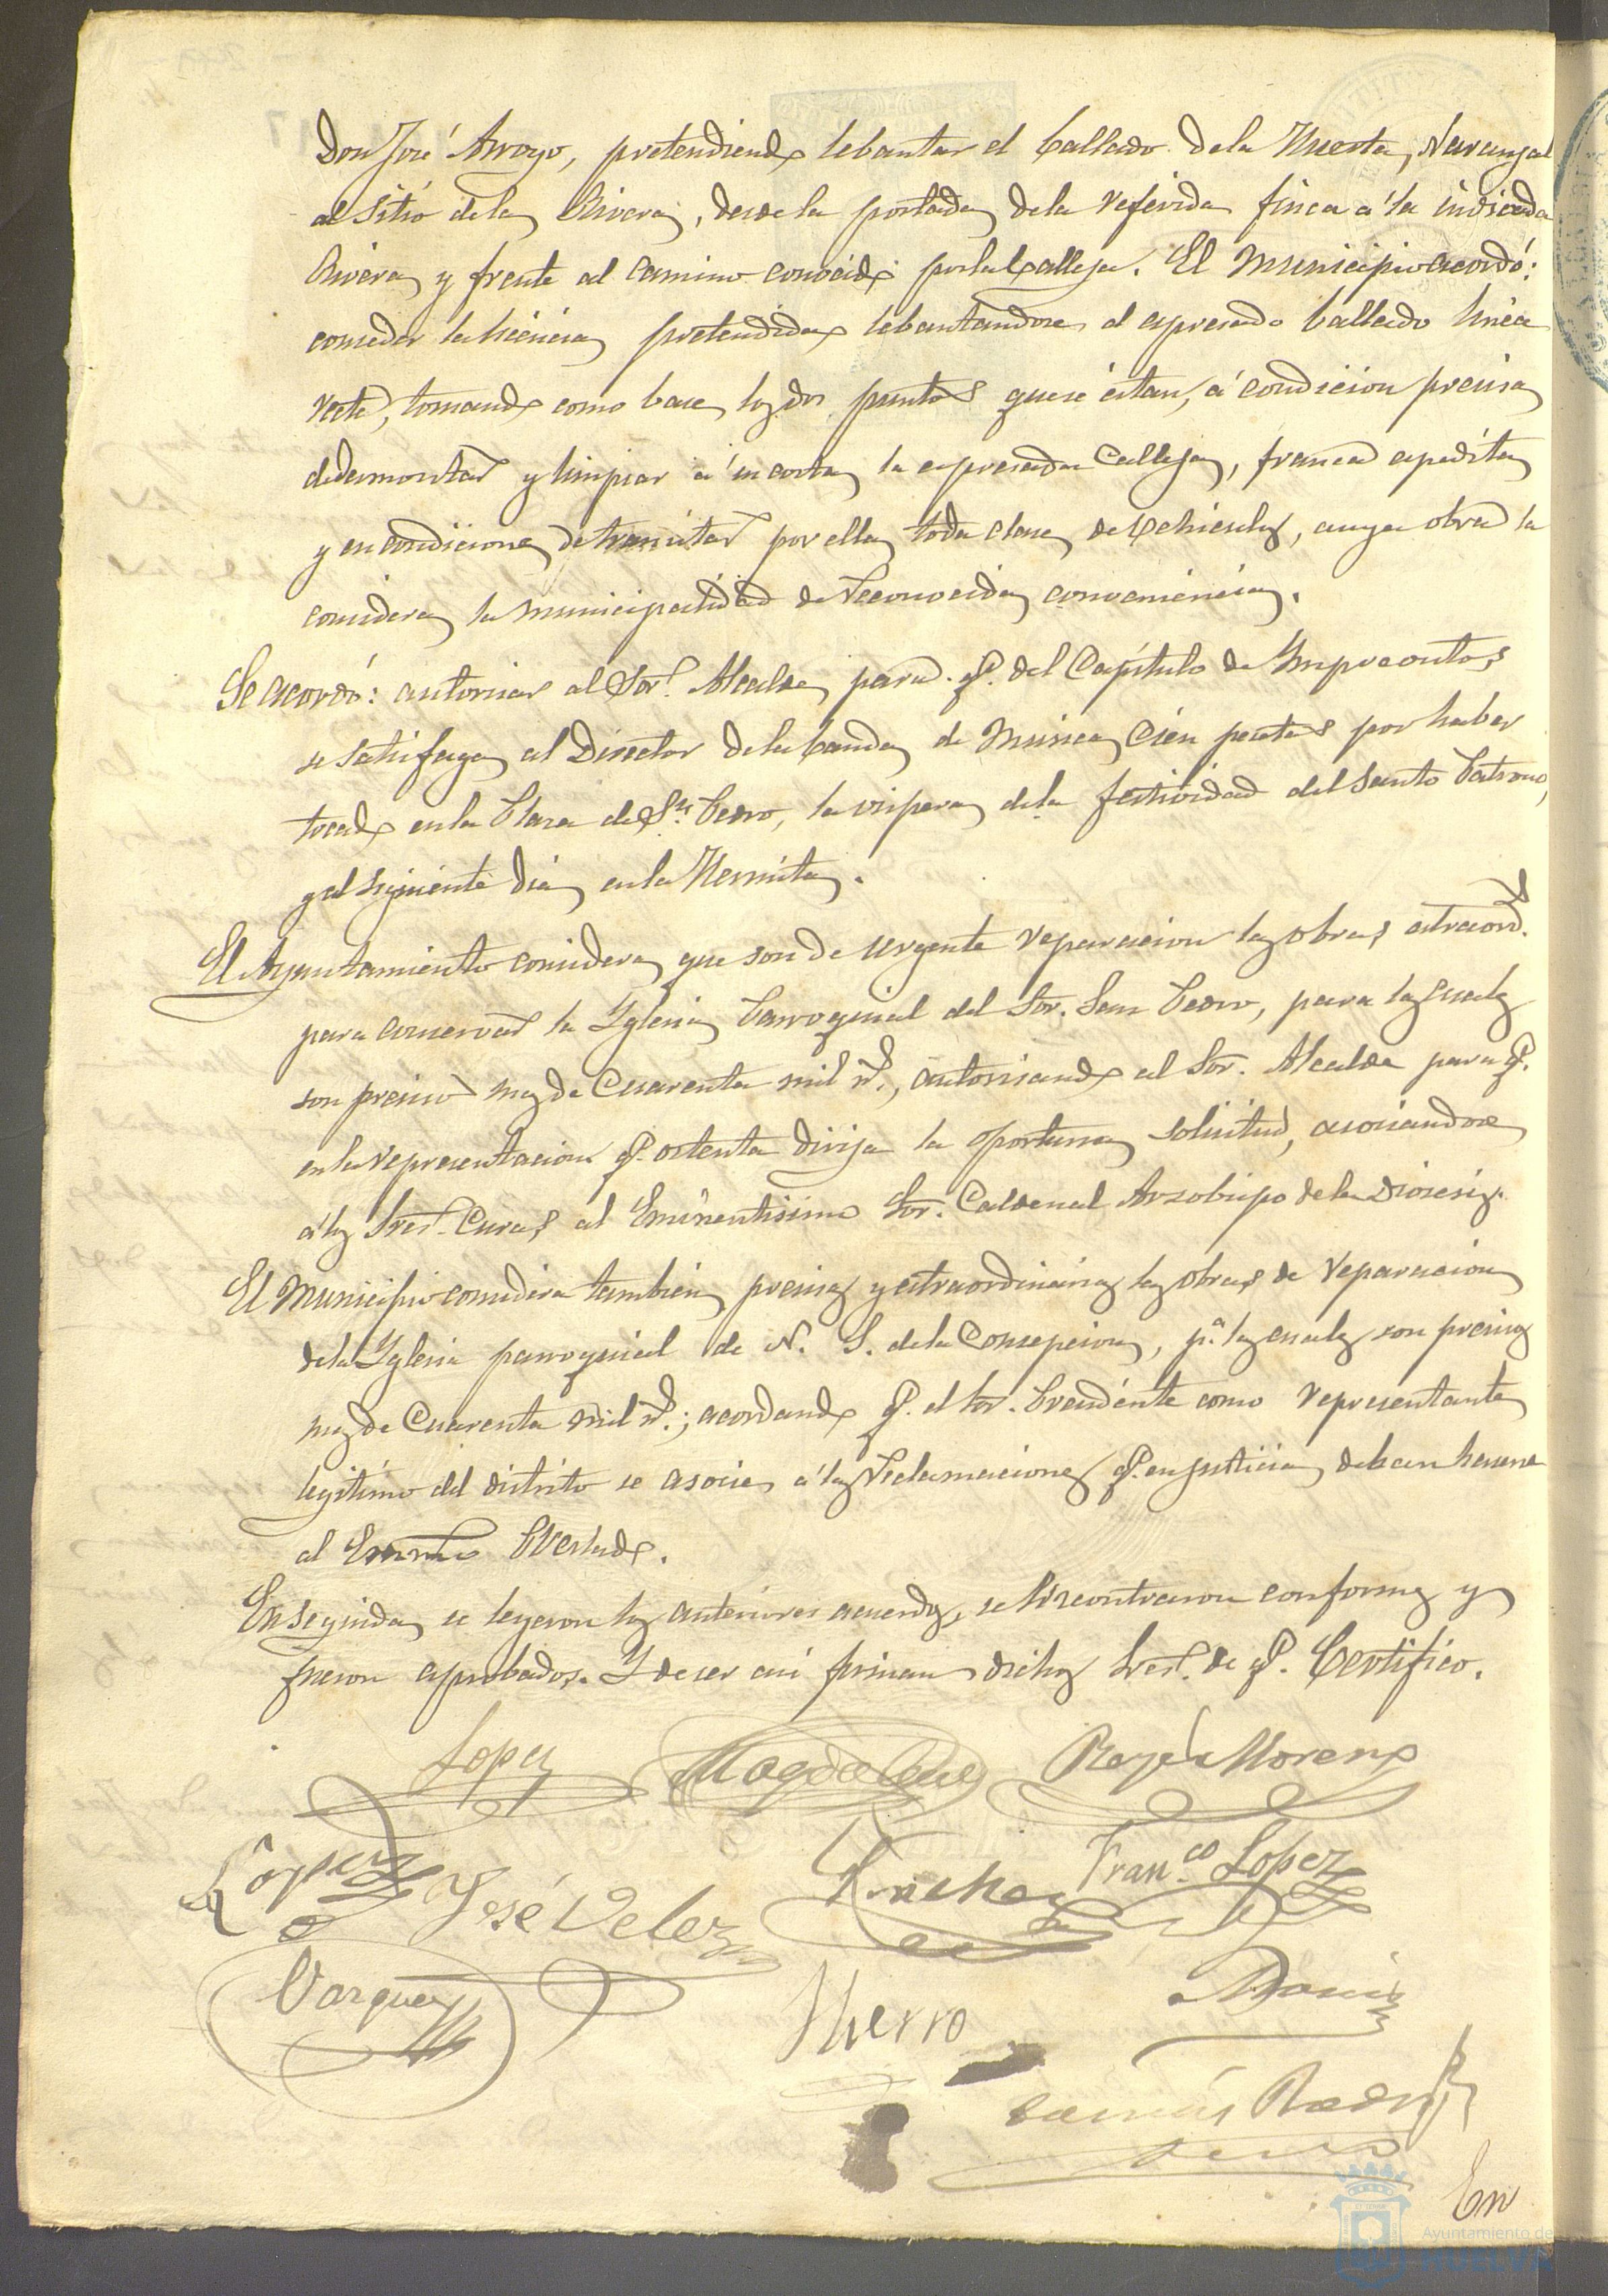 Don José Arroyo, pretendiendo lebantar el ballado de la Huerta, Naranjal
al sitio de la Rivera, desde la portada de la referida finca á la indicada
Rivera y frente al camino conocido por la Calleja. El Municipio acordó:
conseder la licéncia pretendida lebantandose el espresado ballado linea
recta, tomando como base los dos puntos que se citan, á condicion precisa
de desmontar y limpiar á su costa la espresada Calleja, franca espedita
y en condiciones de transitar por ella toda clase de Vehiculos, cuya obra la
considera la municipalidad de reconocida conveniéncia.
Se acordó: autorisar al Sor. Alcalde para q. del Capítulo de Imprevistos
se satisfaga al Director de la banda de Música Cien pesetas por haber
tocado en la Plasa de Sn. Pedro, la vispera de la festividad del Santo Patrono,
y al siguiente dia en la Hermita.
El Ayuntamiento considera que son de urgente reparacion las obras estraords.
para conservar la Yglesia Parroquial del Sor. San Pedro, para las cuales
son presiso mas de Cuarenta mil rs., autorisando al Sor. Alcalde para q.
en la representacion q. ostenta dirija la oportuna solicitud, asosiandose
á los Sres. Curas al Eminentisimo Sor. Caldenal Arzobispo de la Diosesis.
El Municipio considera tambien presisas y estraordinarias las obras de reparacion
de la Yglesia parroquial de N. S. de la Consepcion, pa. las cuales son presisas
mas de Cuarenta mil rs.; acordando q. el Sor. Presidente como representante
legitimo del distrito se asosie á las reclamaciones q. en justicia deban haserse
al Emmo. Prelado.
En seguida se leyeron los anteriores acuerdos, se encontraron conformes y
fueron aprobados. Y de ser asi firman dichos Sres. de q. Certifico.
Lopez Magdalena Rojo Moreno
Lopez José Velez Sanchez Franco. Lopez
Vazquez Hierro
En
Ayuntamiento de
HUELVA